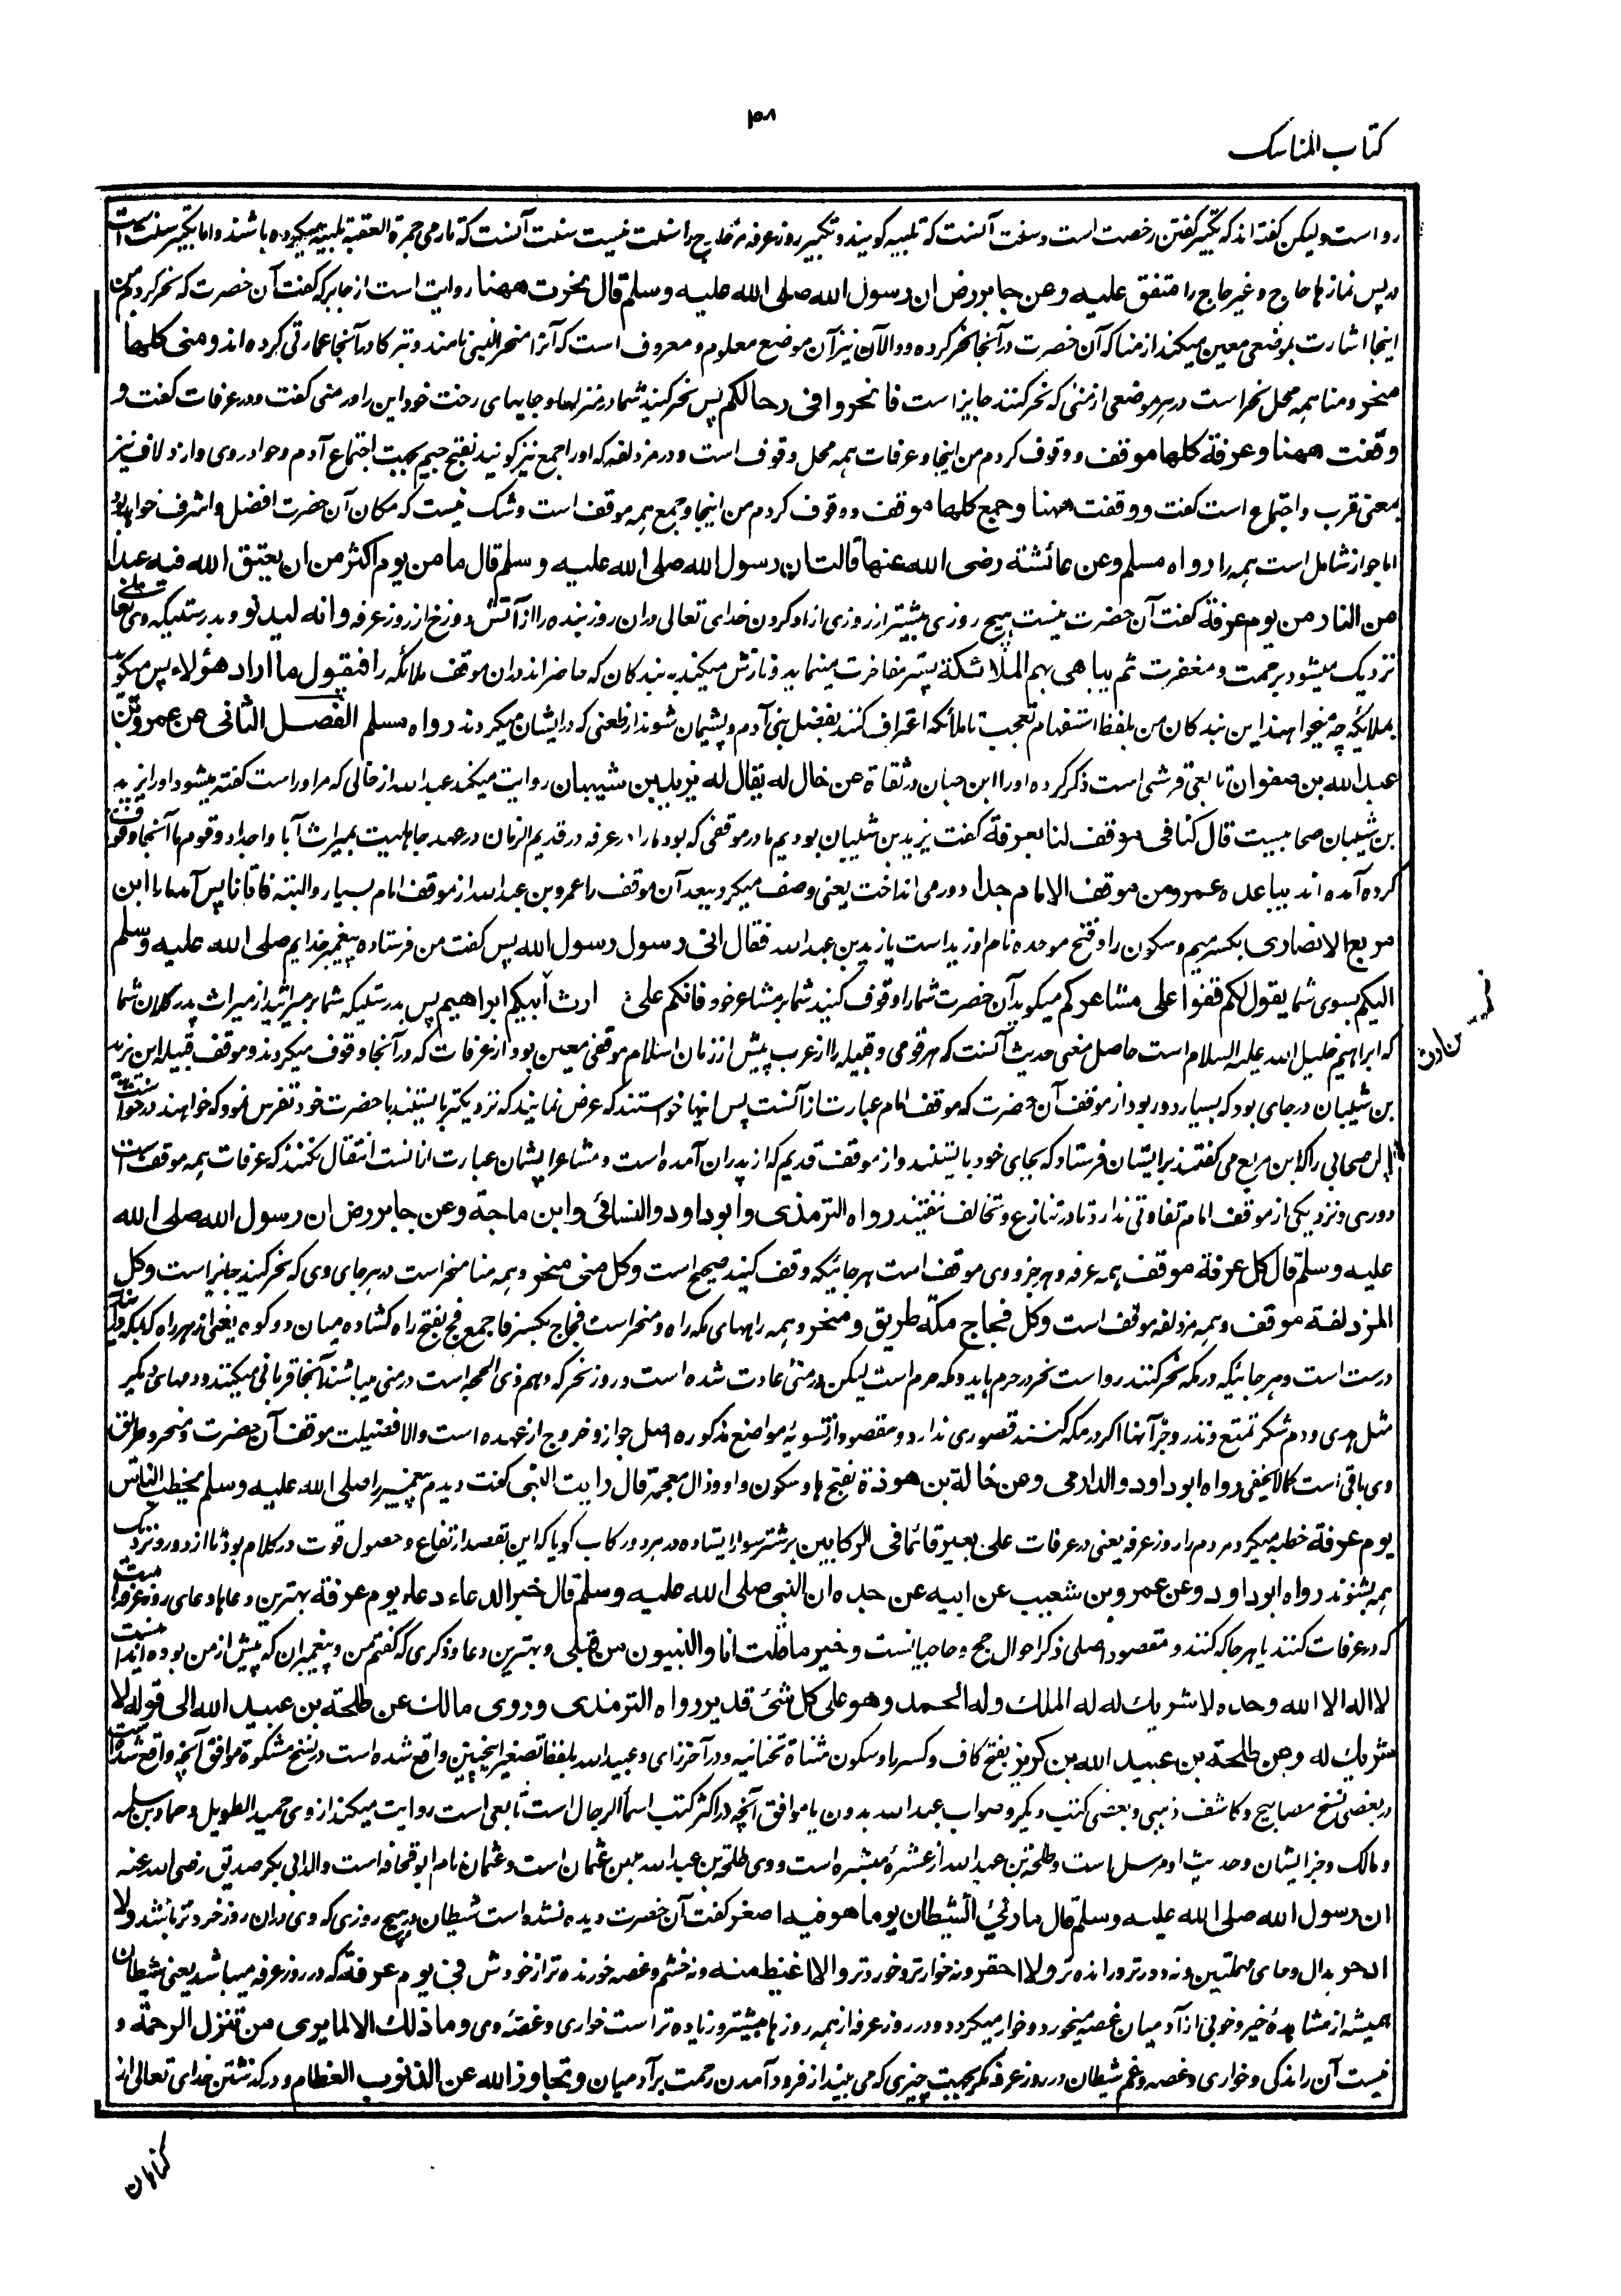 ۳۰۸
کتاب المناسک
روا است ولیکن گفته اند که تکبیر گفتن رخصت است و سنت آنست که تلبیه گویند و تکبیر روز عرفه مر حاج را سنت نیست سنت آنست که تا رمی جمرة العقبه تلبیه میکرده باشند و اما تکبیر سنت است
در پس نمازها حاج و غیر حاج را متفق علیه وعن جابر رض ان رسول الله صلی الله علیه وسلم قال نحرت ههنا روایت است از جابر که گفت آن حضرت که نحر کردم من
اینجا اشارت بموضعی معین میکند از منا که آن حضرت در آنجا نحر کرده و والآن نیز آن موضع معلوم و معروف است که آنرا منحر النبی نامند و تبرکا در آنجا عمارتی کرده اند ومنی کلها
منحر و منا همه محل نحر است در هر موضعی از منی که نحر کنند جایز است فانحروا فی رحالکم پس نحر کنید شما در منزلها و جایهای رخت خود این را در منی گفت و در عرفات گفت و
وقفت ههنا وعرفة کلها موقف و وقوف کردم من اینجا و عرفات همه محل وقوف است و در مزدلفه که او را جمع نیز گویند بفتح جیم بجهت اجتماع آدم و حوا در وی و ازدلاف نیز
بمعنی قرب و اجتماع است گفت ووقفت ههنا وجمع کلها موقف و وقوف کردم من اینجا و جمع همه موقف است و شک نیست که مکان آن حضرت افضل و اشرف خواهد بود
اما جواز شامل است همه را رواه مسلم وعن عائشة رضی الله عنها قالت ان رسول الله صلی الله علیه وسلم قال ما من یوم اکثر من ان یعتق الله فیه عبدا
من النار من یوم عرفة گفت آن حضرت نیست هیچ روزی بیشتر از روزی آزاد کردن خدای تعالی در آن روز بنده را از آتش دوزخ از روز عرفه وانه لیدنو و بدرستیکه وی تعالی
نزدیک میشود برحمت و مغفرت ثم یباهی بهم الملائکة پستر مفاخرت مینماید و نازش میکند به بندگان که حاضر اند در آن موقف ملائکه را فیقول ما اراد هؤلاء پس میگوید
بملائیکه چه میخواهند این بندگان من بلفظ استفهام تعجب تا ملائکه اعتراف کنند بفضل بنی آدم و پشیمان شوند از طعنی که در ایشان میکردند رواه مسلم الفصل الثانی عن عمرو بن
عبد الله بن صفوان تابعی قرشی است ذکر کرده او را ابن حبان در ثقاة عن خال له یقال له یزید بن شیبان روایت میکند عبد الله از خالی که مر او را است گفته میشود او را یزید
بن شیبان صحابیست قال کنا فی موقف لنا بعرفة گفت یزید بن شیبان بودیم ما در موقفی که بود ما را در عرفه در قدیم الزمان در عهد جاهلیت بمیراث آبا و اجداد و قوم ما آنجا وقوف
کرده آمده اند یباعده عمرو من موقف الامام جدا دور می انداخت یعنی وصف میکرد ببعد آن موقف را عمرو بن عبد الله از موقف امام بسیار و البته فاتانا پس آمد ما را ابن
مربع الانصاری بکسر میم و سکون را و فتح موحده نام او زید است یا زید بن عبد الله فقال انی رسول رسول الله پس گفت من فرستاده پیغمبر خدایم صلی الله علیه وسلم
الیکم بسوی شما یقول لکم قفوا علی مشاعرکم میگوید آن حضرت شما را وقوف کنید شما بر مشاعر خود فانکم علی ارث ابیکم ابراهیم پس بدرستیکه شما بر میراثید از میراث پدر کلان شما
که ابراهیم خلیل الله علیه السلام است حاصل معنی حدیث آنست که هر قومی و قبیله را از عرب پیش از زمان اسلام موقفی معین بود از عرفات که در آنجا وقوف میکردند و موقف قبیله این یزید
بن شیبان در جای بود که بسیار دور بود از موقف آن حضرت که موقف امام عبارت از آنست پس اینها خواستند که عرض نمایند که نزدیکتر بایستند با حضرت خود تفرس نمود که خواهند درخواست
این صحابی را که ابن مربع می گفتند بر ایشان فرستاد که بجای خود بایستند و از موقف قدیم که از پدران آمده است و مشاعر ایشان عبارت از آنست انتقال نکنند که عرفات همه موقف است
دوری و نزدیکی از موقف امام تفاوتی ندارد تا در تنازع و تخالف نیفتند رواه الترمذی وابو داود والنسائی وابن ماجة وعن جابر رض ان رسول الله صلی الله
علیه وسلم قال کل عرفة موقف همه عرفه و هر جزو وی موقف است هر جائیکه وقف کنید صحیح است وکل منی منحر و همه منا منحر است در هر جای وی که نحر کنید جایز است وکل
المزدلفة موقف و همه مزدلفه موقف است وکل فجاج مکة طریق ومنحر و همه راههای مکه راه و منحر است فجاج بکسر فا جمع فج بفتح راه کشاده میان دو کوه یعنی از هر راه که بمکه درآیند
درست است و هر جائیکه در مکه نحر کنند روا است نحر در حرم باید و مکه حرم است لیکن در منی عادت شده است و روز نحر که دهم ذی الحجه است در منی میباشند آنجا قربانی میکنند و دمهای دیگر
مثل هدی و دم شکر تمتع و نذر و جز آنها اگر در مکه کنند قصوری ندارد و مقصود از تسویه مواضع مذکوره اصل جواز و خروج از عهده است والا فضیلت موقف آن حضرت و منحر و طریق
وی باقی است کما لا یخفی رواه ابو داود والدارمی وعن خالد بن هوذة بفتح ها و سکون واو و ذال معجمه قال رایت النبی گفت دیدم پیغمبر را صلی الله علیه وسلم یخطب الناس
یوم عرفة خطبه میکرد مردم را روز عرفه یعنی در عرفات علی بعیر قائما فی الرکابین بر شتر سوار ایستاده در هر دو رکاب گویا که این بقصد ارتفاع و حصول قوت در کلام بود تا از دور و نزدیک
همه بشنوند رواه ابو داود وعن عمرو بن شعیب عن ابیه عن جده ان النبی صلی الله علیه وسلم قال خیر الدعاء دعاء یوم عرفة بهترین دعاها دعای روز عرفه است
که در عرفات کنند یا هر جا که کنند و مقصود اصلی ذکر احوال حج و حاجیانست وخیر ما قلت انا والنبیون من قبلی و بهترین دعا و ذکری که گفتم من و پیغمبران که پیش از من بوده اند اینست
لا اله الا الله وحده لا شریك له له الملك وله الحمد وهو علی کل شئ قدیر رواه الترمذی وروی مالك عن طلحة بن عبید الله الی قوله لا
شریك له وعن طلحة بن عبید الله بن کریز بفتح کاف و کسر را و سکون مثناة تحتانیه و در آخر زای و عبید الله بلفظ تصغیر اینچنین واقع شده است در نسخ مشکوة موافق آنچه واقع شده است
در بعضی نسخ مصابیح و کاشف ذهبی و بعضی کتب دیگر و صواب عبد الله بدون یا موافق آنچه در اکثر کتب اسماء الرجال است تابعی است روایت میکند از وی حمید الطویل و حماد بن سلمه
و مالک و جز ایشان و حدیث او مرسل است و طلحة بن عبید الله از عشرهٔ مبشره است و وی طلحة بن عبید الله بن عثمان است و عثمان نام ابو قحافه است والد ابی بکر صدیق رضی الله عنه
ان رسول الله صلی الله علیه وسلم قال ما رئی الشیطان یوما هو فیه اصغر گفت آن حضرت دیده نشده است شیطان هیچ روزی که وی در آن روز خردتر باشد ولا
ادحر بدال و حای مهملتین و نه دورتر و رانده تر ولا احقر و نه خوارتر و خردتر ولا اغیظ منه و نه خشم و غصه خورنده تر از خودش فی یوم عرفة که در روز عرفه میباشد یعنی شیطان
همیشه از مشاهدهٔ خیر و خوبی از آدمیان غصه میخورد و خوار میگردد و در روز عرفه از همه روزها بیشتر و زیاده تر است خواری و غصهٔ وی وما ذلك الا لما یری من تنزل الرحمة و
نیست آن راندگی و خواری و غصه و غم شیطان در روز عرفه مگر بجهت چیزی که می بیند از فرود آمدن رحمت بر آدمیان وتجاوز الله عن الذنوب العظام و درگذشتن خدای تعالی از
گناهان